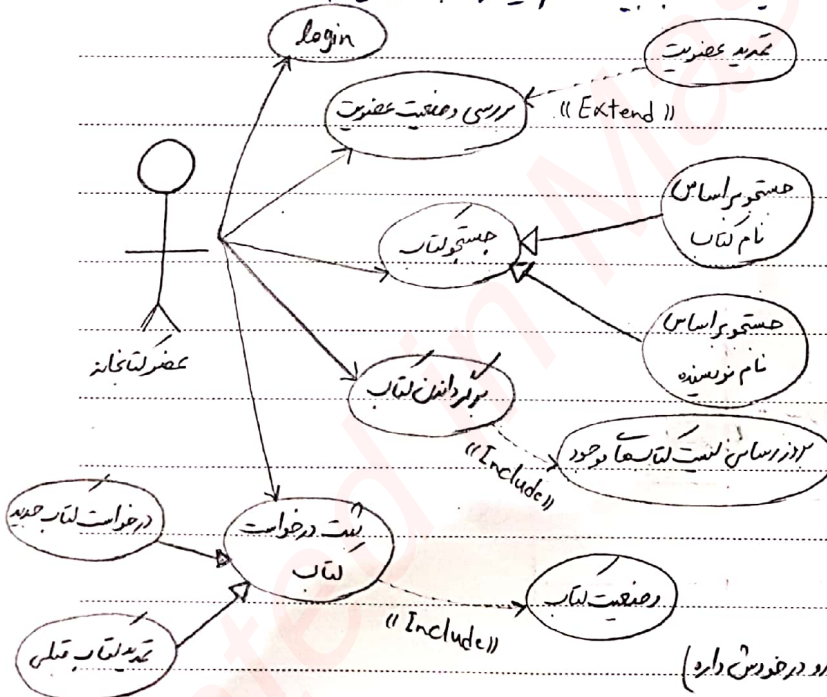 login
تمدید عضویت
بررسی وضعیت عضویت
«Extend»
جستجو براساس
نام کتاب
جستجو کتاب
جستجو براساس
نام نویسنده
عضو کتابخانه
برگرداندن کتاب
«Include»
بروزرسانی لیست کتاب‌های موجود
درخواست کتاب جدید
ثبت درخواست
کتاب
وضعیت کتاب
«Include»
تمدید کتاب قبلی
رو در خودش داره)